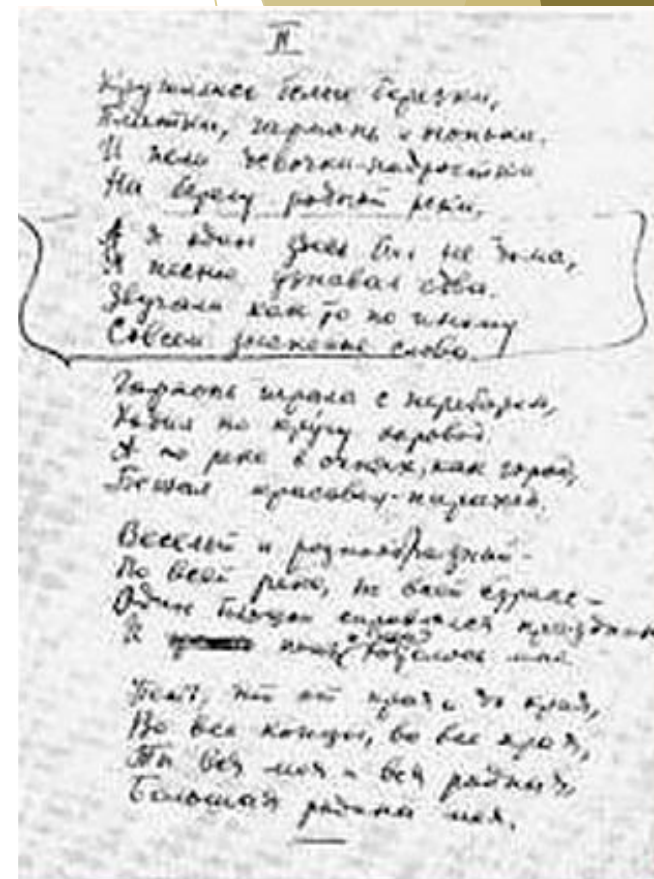 II
Кружились белые березки,
Платки, гармонь и огоньки.
И пели девочки-подростки
На берегу родной реки.
А я один здесь был не дома,
Я песню узнавал едва.
Звучали как то по иному
Совсем знакомые слова.
Гармонь играла с перебором,
Ходил по кругу хоровод.
А по реке в огнях, как город,
Бежал красавец-пароход.
Веселый и разнообразный -
По всей реке, по всей стране -
Один большой справлялся праздник
И петь хотелось мне
Петь, что от края и до края,
Во все концы, во все края,
Ты вся моя и вся родная,
Большая родина моя.